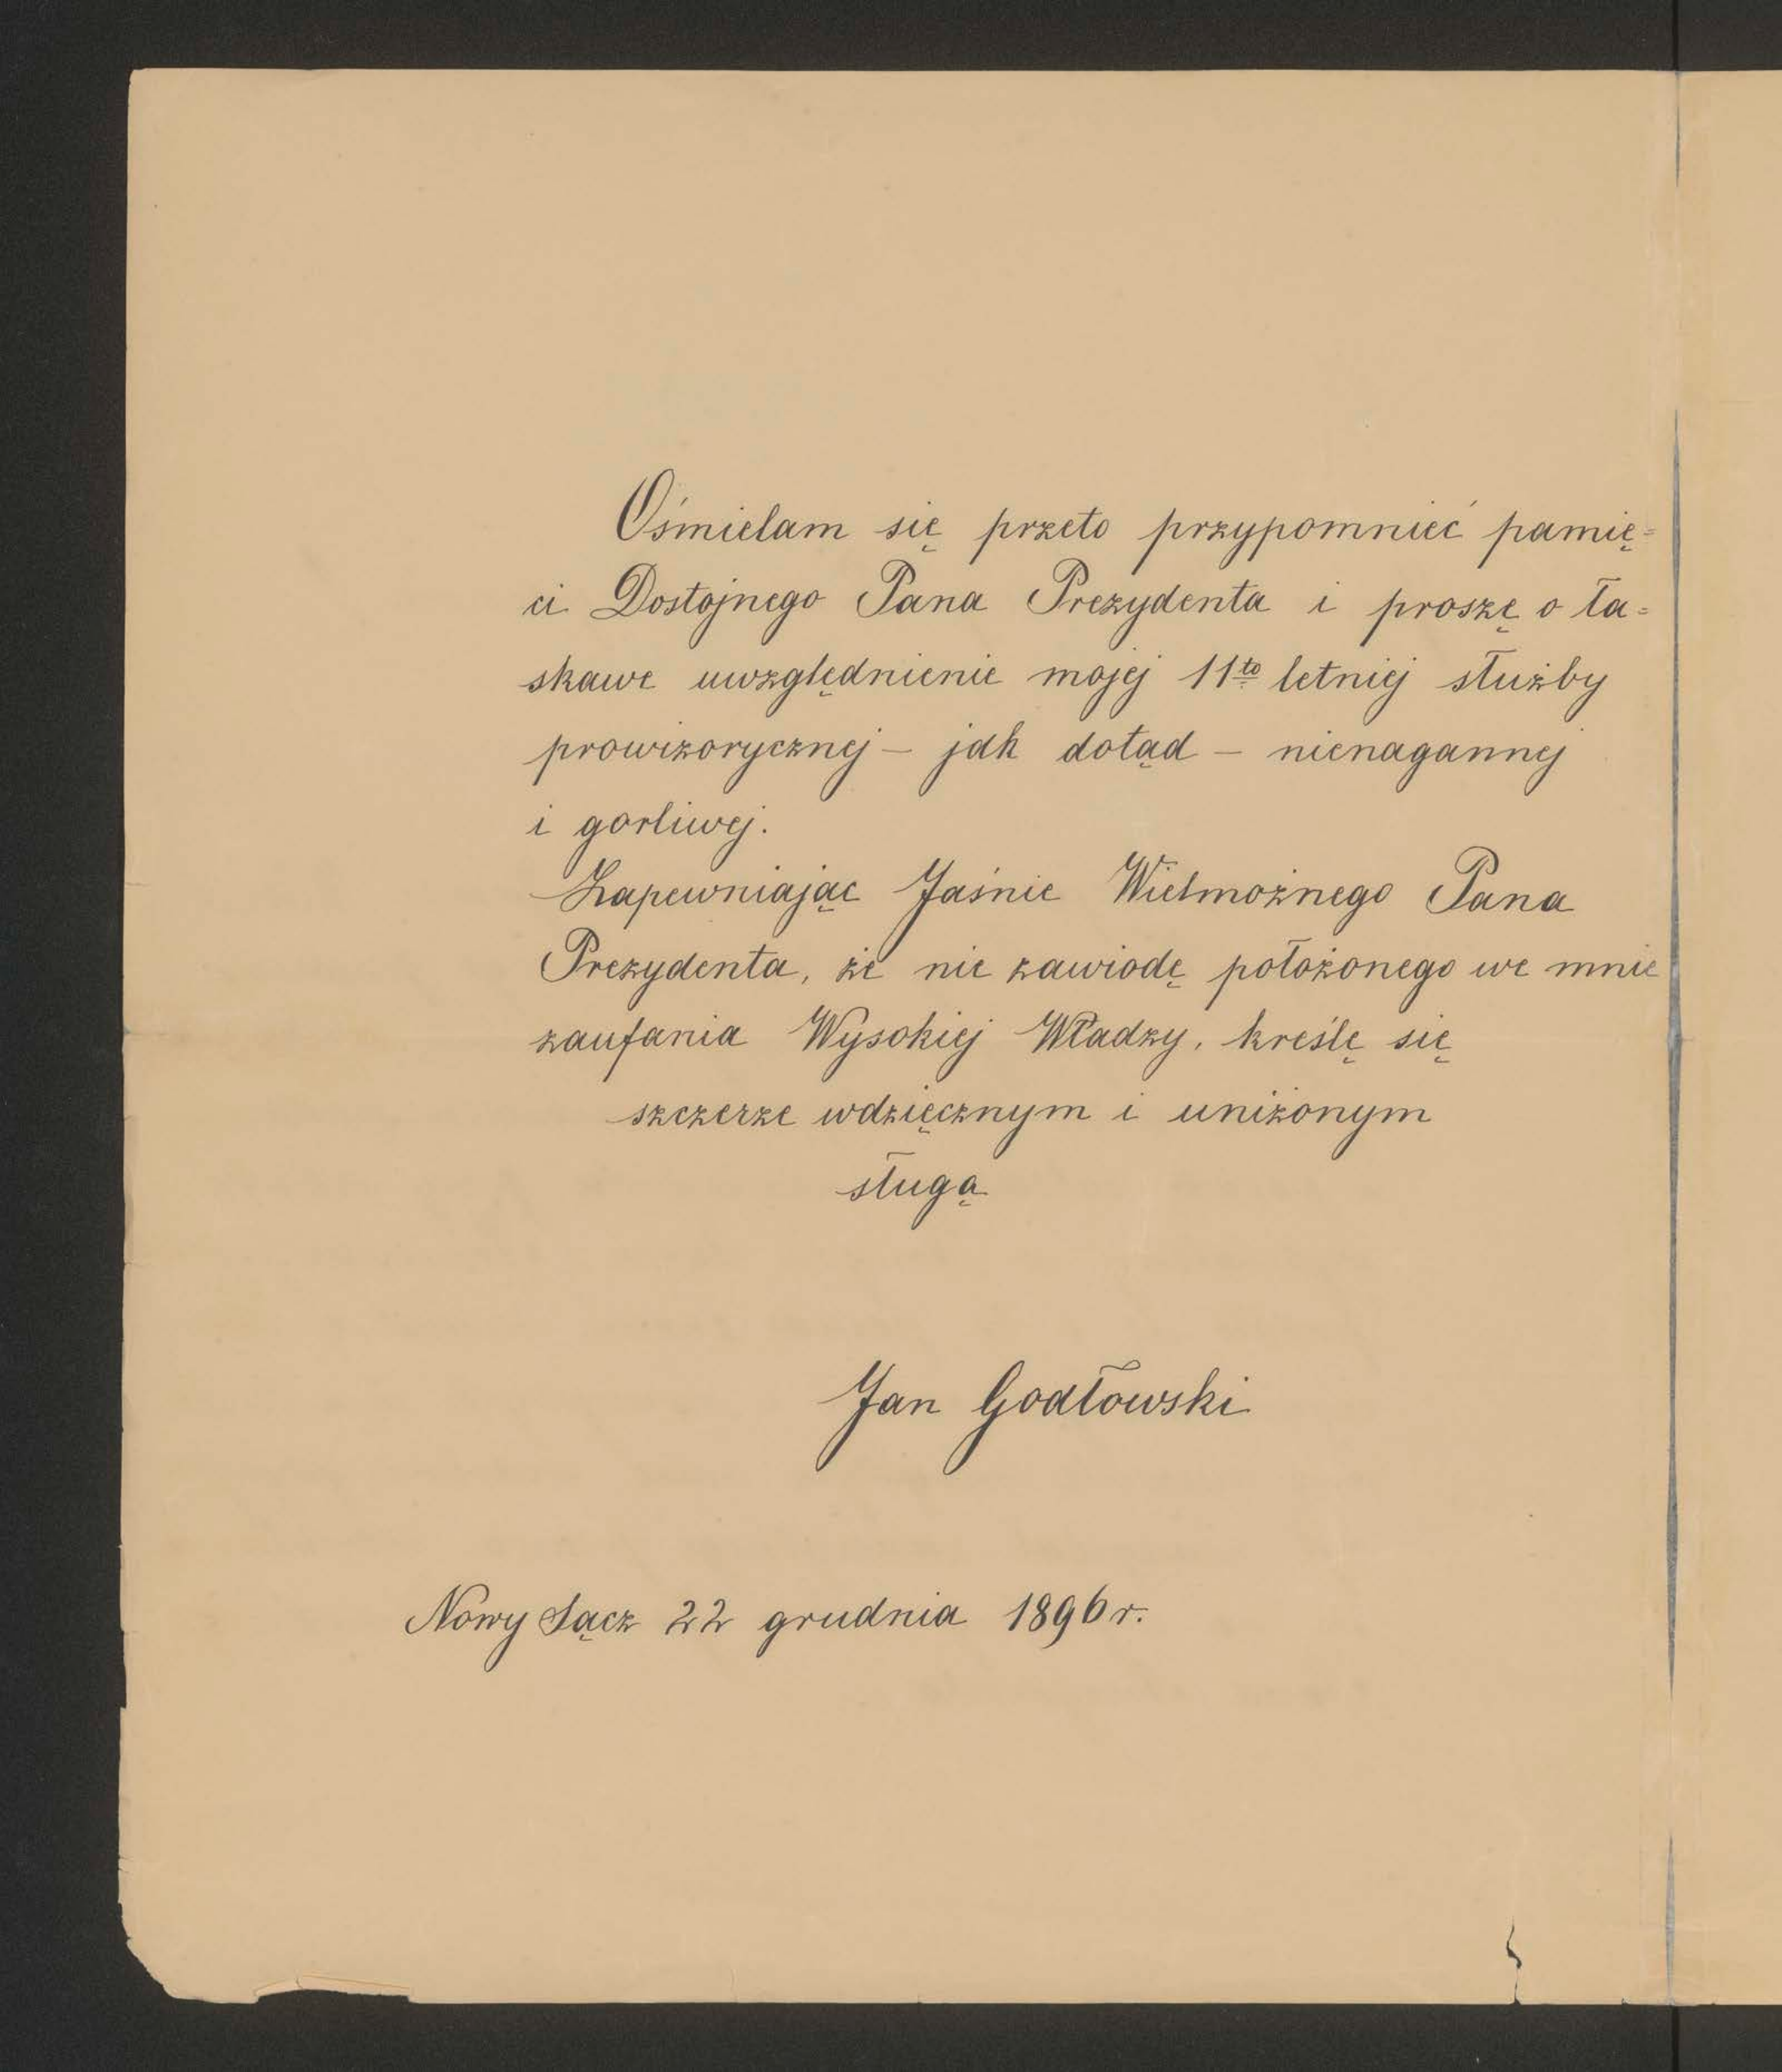 Ośmielam się przeto przypomnieć pamię=
ci Dostojnego Pana Prezydenta i proszę o ła=
skawe uwzględnienie mojej 11to letniej służby
prowizorycznej – jak dotąd – nienagannej
i gorliwej.
Zapewniając Jaśnie Wielmożnego Pana
Prezydenta, że nie zawiodę położonego we mnie
zaufania Wysokiej Władzy, kreślę się
szczerze wdzięcznym i uniżonym
sługą
Jan Godłowski
Nowy Sącz 22 grudnia 1896 r.